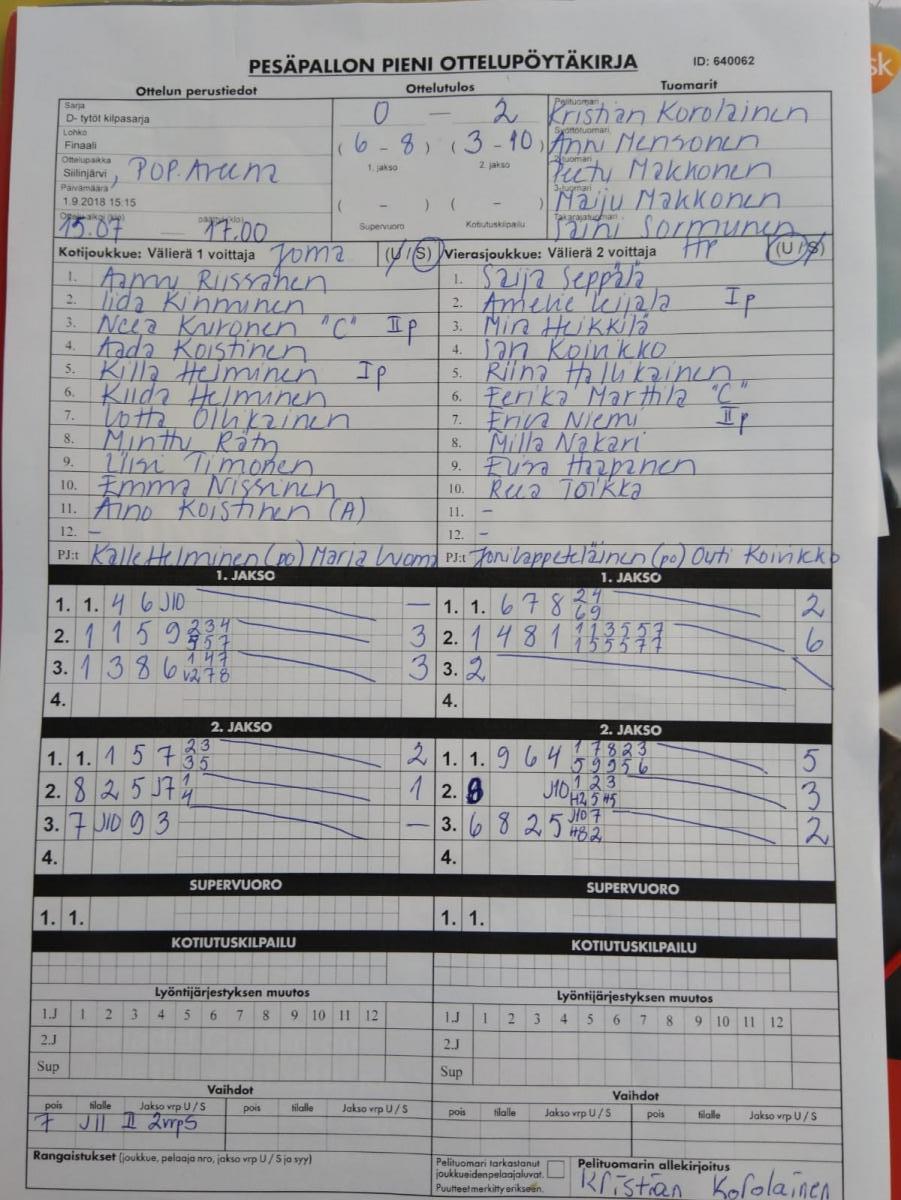 PESÄPALLON PIENI OTTELUPÖYTÄKIRJA ID: 640062
Ottelun perustiedot Ottelutulos Tuomarit
Sarja
D- tytöt kilpasarja
Lohko
Finaali
Ottelupaikka
Siilinjärvi, POP Areena
Päivämäärä
1.9.2018 15:15
15.07 — 17.00
0 — 2
(6 - 8) (3 - 10)
1. jakso 2. jakso
( - ) ( - )
Supervuoro Kotiutuskilpailu
Pelituomari
Kristian Korolainen
Syöttötuomari
Anni Mensonen
2-tuomari
Peetu Makkonen
3-tuomari
Maiju Makkonen
Takarajatuomari
Saini Sormunen
Kotijoukkue: Välierä 1 voittaja Joma (U/S)
1. Aamu Riissanen
2. Iida Kinnunen
3. Neea Kuronen "C" II p
4. Aada Koistinen
5. Killa Helminen I p
6. Kiida Helminen
7. Lotta Ollikainen
8. Minttu Räty
9. Timonen
10. Emma Nissinen
11. Aino Koistinen (A)
12. -
PJ:t Kalle Helminen (po) Maria Luoma
Vierasjoukkue: Välierä 2 voittaja HP (U/S)
1. Saija Seppälä
2. Amelie Leijala I p
3. Mira Heikkilä
4. Koivikko
5. Riina Hallikainen
6. Eerika Marttila "C"
7. Erica Niemi II p
8. Milla Nakari
9. Eliisa Haapanen
10. Reea Toikka
11. -
12. -
PJ:t Joni Lappeteläinen (po) Outi Koivikko
1. JAKSO
1. 1. 4 6 J10 —
2. 1 1 5 9 2 3 4 3
5 5 7
3. 1 3 8 6 1 4 7 3
v2 7 8
4.
1. JAKSO
1. 1. 6 7 8 2 4 2
6 9
2. 1 4 8 1 1 1 3 5 5 7 6
1 5 5 5 7 7
3. 2
4.
2. JAKSO
1. 1. 1 5 7 2 3 2
3 5
2. 8 2 5 J7 1 1
4
3. 7 J10 9 3 —
4.
2. JAKSO
1. 1. 9 6 4 1 7 8 2 3 5
5 9 9 5 6
2. 8 J10 1 2 3 3
H2 5 H5
3. 6 8 2 5 J10 7 2
H8 2
4.
SUPERVUORO
1. 1.
SUPERVUORO
1. 1.
KOTIUTUSKILPAILU
KOTIUTUSKILPAILU
Lyöntijärjestyksen muutos
1.J 1 2 3 4 5 6 7 8 9 10 11 12
2.J
Sup
Lyöntijärjestyksen muutos
1.J 1 2 3 4 5 6 7 8 9 10 11 12
2.J
Sup
Vaihdot
pois tilalle Jakso vrp U / S pois tilalle Jakso vrp U / S
7 J11 II 2vrpS
Vaihdot
pois tilalle Jakso vrp U / S pois tilalle Jakso vrp U / S
Rangaistukset (joukkue, pelaaja nro, jakso vrp U / S ja syy)
Pelituomari tarkastanut
joukkueiden pelaajaluvat.
Puutteet merkitty erikseen.
Pelituomarin allekirjoitus
Kristian Korolainen
sk